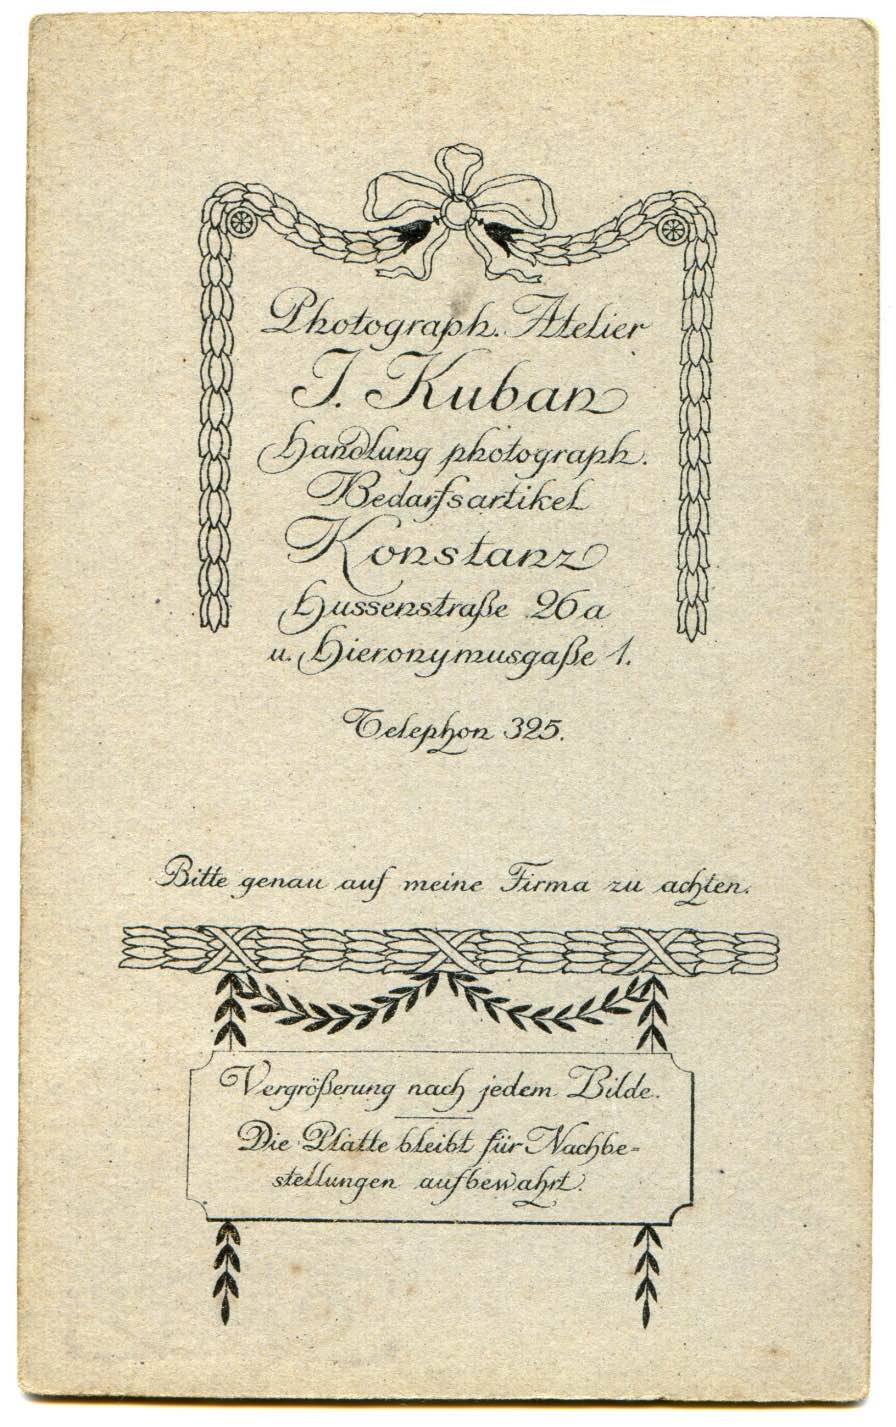 Photograph. Atelier
J. Kuban
Handlung photograph.
Bedarfsartikel
Konstanz
Hussenstraße 26a
u. Hieronymusgaße 1.
Telephon 325.
Bitte genau auf meine Firma zu achten.
Vergrößerung nach jedem Bilde.
Die Platte bleibt für Nachbe-
stellungen aufbewahrt.